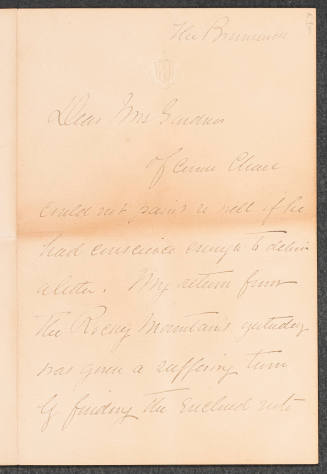 The Brunswick
Dear Mrs Gardner
Of course Chase
could not paint so well if he
had conscience enough to deliver
a letter. My return from
the Rocky Mountains yesterday
was given a suffering turn
by finding the enclosed note